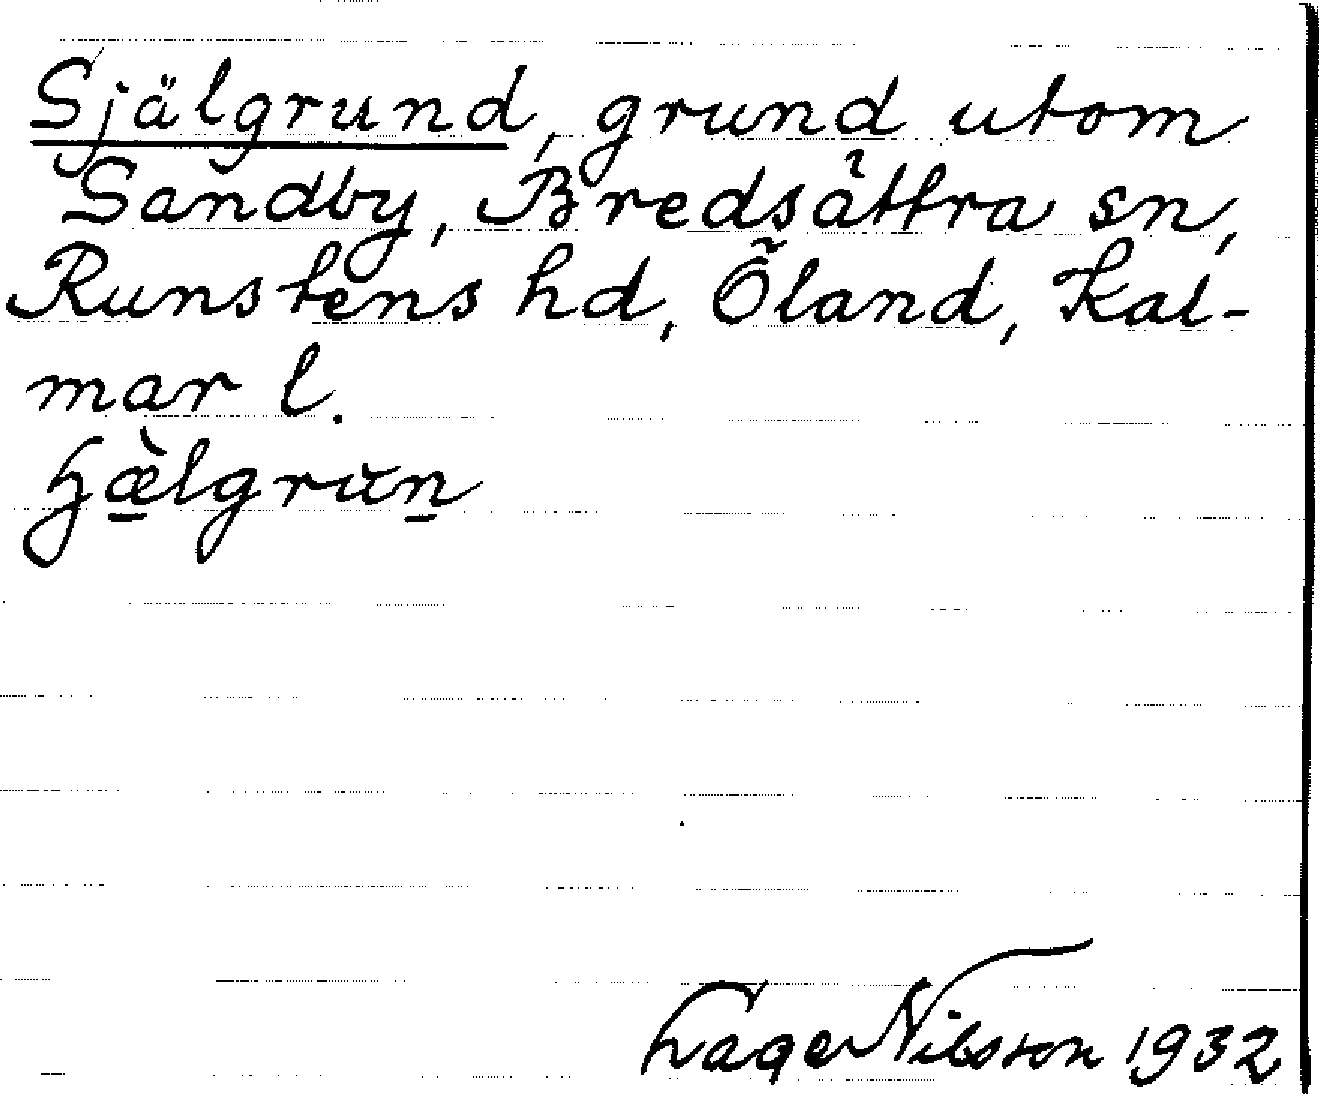 Själgrund, grund utom
Sandby, Bredsättra sn,
Runstens hd, Öland, Kal-
mar l.
ɧæ̀lgrun
Lage Nilsson 1932